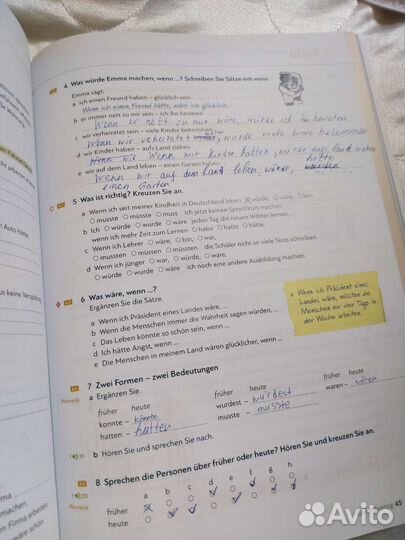 4 Was würde Emma machen, wenn ...? Schreiben Sie Sätze mit wenn.
Emma sagt:
a ich einen Freund haben – glücklich sein
Wenn ich einen Freund hätte, wäre ich glücklich.
b er immer nett zu mir sein – ich ihn heiraten
Wenn er nett zu mir wäre, würde ich ihn heiraten
c wir verheiratet sein – viele Kinder bekommen
Wenn wir verheiratet, würde viele Kinder bekommen
d wir Kinder haben – aufs Land ziehen
Wenn wir Kinder hätten, aufs Land ziehen
e wir auf dem Land leben – einen Garten haben
Wenn wir auf dem Land leben würde, hätte
einen Garten
5 Was ist richtig? Kreuzen Sie an.
a Wenn ich seit meiner Kindheit in Deutschland leben würde, wäre, bin,
musste müsste muss ich jetzt keinen Sprachkurs machen.
b Ich würde wurde werde jeden Tag neuen Wörter lernen,
wenn ich mehr Zeit zum Lernen habe hatte hätte.
c Wenn ich Lehrer wäre, bin, war,
mussten müssen müssten die Schüler nicht so viele Tests schreiben.
d Wenn ich jünger war, würde, wäre,
würde wurde wäre ich noch eine andere Ausbildung machen.
6 Was wäre, wenn ...?
Ergänzen Sie die Sätze.
a Wenn ich Präsident eines Landes wäre, ...
b Wenn die Menschen immer die Wahrheit sagen würden, ...
c Das Leben könnte so schön sein, wenn ...
d Ich hätte Angst, wenn ...
e Die Menschen in meinem Land wären glücklicher, wenn ...
a Wenn ich Präsident eines
Landes wäre, müssten die
Menschen nur vier Tage in
der Woche arbeiten.
7 Zwei Formen – zwei Bedeutungen
Phonetik
a Ergänzen Sie.
früher heute früher heute früher heute
konnte – könnte wurdest – würdest waren – wären
hatten – hätten musste – müsste
19 b Hören Sie und sprechen Sie nach.
8 Sprechen die Personen über früher oder heute? Hören Sie und kreuzen Sie an.
20
Phonetik
a b c d e f g h
früher
heute
45
Avito